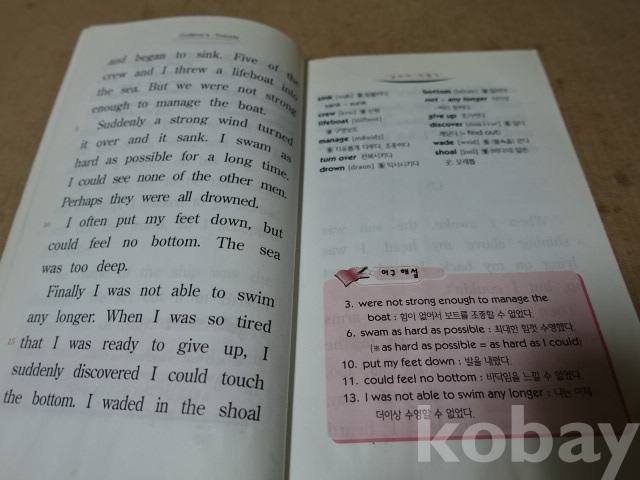 Gulliver's Travels
and began to sink. Five of the
crew and I threw a lifeboat into
the sea. But we were not strong
enough to manage the boat.
Suddenly a strong wind turned
it over and it sank. I swam as
hard as possible for a long time.
I could see none of the other men.
Perhaps they were all drowned.
10 I often put my feet down, but
could feel no bottom. The sea
was too deep.
Finally I was not able to swim
any longer. When I was so tired
15 that I was ready to give up, I
suddenly discovered I could touch
the bottom. I waded in the shoal
sink
sank - sunk
crew
lifeboat
manage
turn over
drown
bottom
not - any longer
give up
discover
= find out
wade
shoal
어구 해설
3. were not strong enough to manage the
boat : 힘이 없어서 보트를 조종할 수 없었다.
6. swam as hard as possible : 최대한 힘껏 수영했다.
(※ as hard as possible = as hard as I could)
10. put my feet down : 발을 내렸다.
11. could feel no bottom : 바닥임을 느낄 수 없었다.
13. I was not able to swim any longer : 나는 이제
더이상 수영할 수 없었다.
kobay